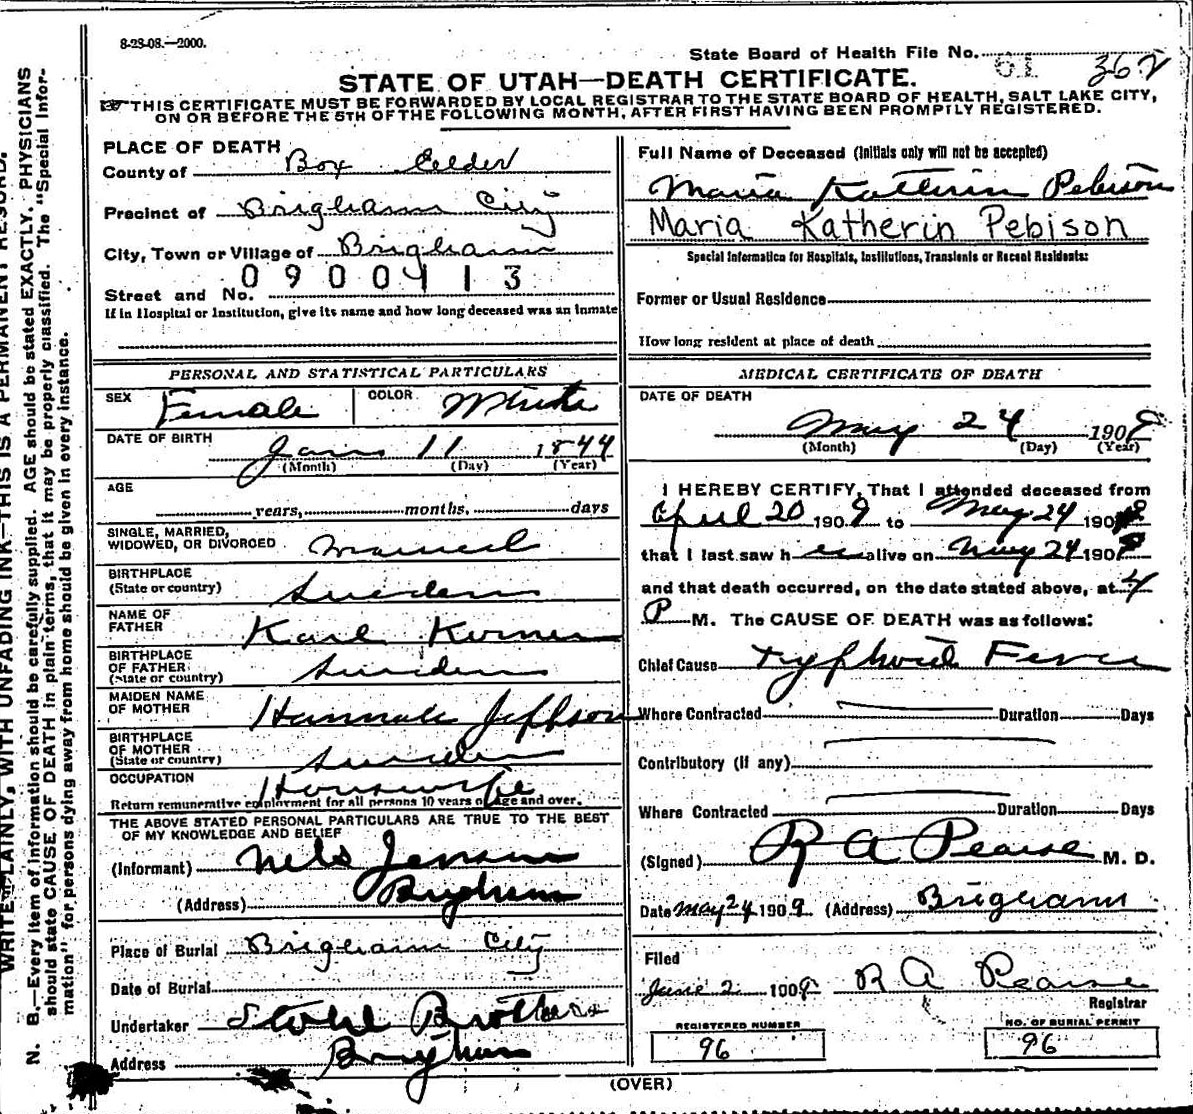 8-28-08.—2000.
State Board of Health File No. 61 362
STATE OF UTAH—DEATH CERTIFICATE.
THIS CERTIFICATE MUST BE FORWARDED BY LOCAL REGISTRAR TO THE STATE BOARD OF HEALTH, SALT LAKE CITY,
ON OR BEFORE THE 5TH OF THE FOLLOWING MONTH, AFTER FIRST HAVING BEEN PROMPTLY REGISTERED.
N. B.—Every item of information should be carefully supplied. AGE should be stated EXACTLY. PHYSICIANS
should state CAUSE OF DEATH in plain terms, that it may be properly classified. The "Special Infor-
mation" for persons dying away from home should be given in every instance.
PLACE OF DEATH
County of Box Elder
Precinct of Brigham City
City, Town or Village of Brigham
0900413
Street and No.
If in Hospital or Institution, give its name and how long deceased was an inmate
PERSONAL AND STATISTICAL PARTICULARS
SEX Female COLOR White
DATE OF BIRTH Jan 11 1844
(Month) (Day) (Year)
AGE
years, months, days
SINGLE, MARRIED,
WIDOWED, OR DIVORCED Married
BIRTHPLACE
(State or country) Sweden
NAME OF
FATHER Karl Kerner
BIRTHPLACE
OF FATHER Sweden
(State or country)
MAIDEN NAME
OF MOTHER Hannah Jeppson
BIRTHPLACE
OF MOTHER Sweden
(State or country)
OCCUPATION Housewife
Return remunerative employment for all persons 10 years of age and over.
THE ABOVE STATED PERSONAL PARTICULARS ARE TRUE TO THE BEST
OF MY KNOWLEDGE AND BELIEF
(Informant) Nels Jensen
(Address) Brigham
Place of Burial Brigham City
Date of Burial
Undertaker Stohl Brothers
Address Brigham
Full Name of Deceased (Initials only will not be accepted)
Maria Katherin Pebison
Maria Katherin Pebison
Special Information for Hospitals, Institutions, Transients or Recent Residents:
Former or Usual Residence
How long resident at place of death
MEDICAL CERTIFICATE OF DEATH
DATE OF DEATH
May 24 1909
(Month) (Day) (Year)
I HEREBY CERTIFY, That I attended deceased from
April 20 1909 to May 24 1909
that I last saw her alive on May 24 1909
and that death occurred, on the date stated above, at 4
P M. The CAUSE OF DEATH was as follows:
Chief Cause Typhoid Fever
Where Contracted Duration Days
Contributory (if any)
Where Contracted Duration Days
(Signed) R A Pearse M. D.
Date May 24 1909 (Address) Brigham
Filed
June 2 1909 R A Pearse
Registrar
REGISTERED NUMBER
96
NO. OF BURIAL PERMIT
96
(OVER)